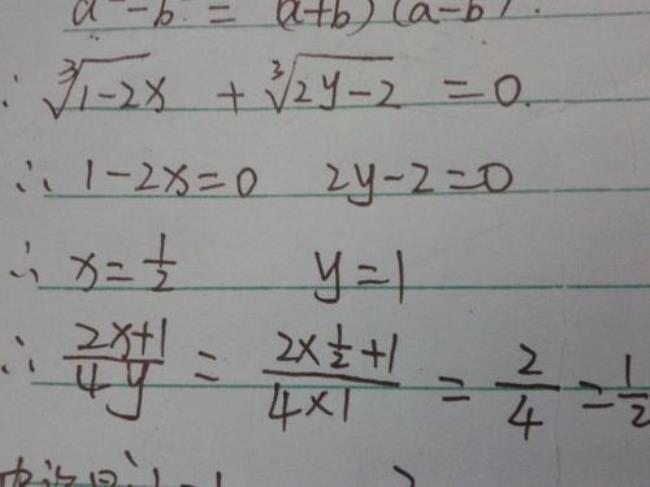 a - b = (a+b)(a-b).
∴ ∛(1-2x) + ∛(2y-2) = 0.
∴ 1-2x=0 2y-2=0
∴ x=1/2 y=1
∴ (2x+1)/(4y) = (2×1/2+1)/(4×1) = 2/4 = 1/2